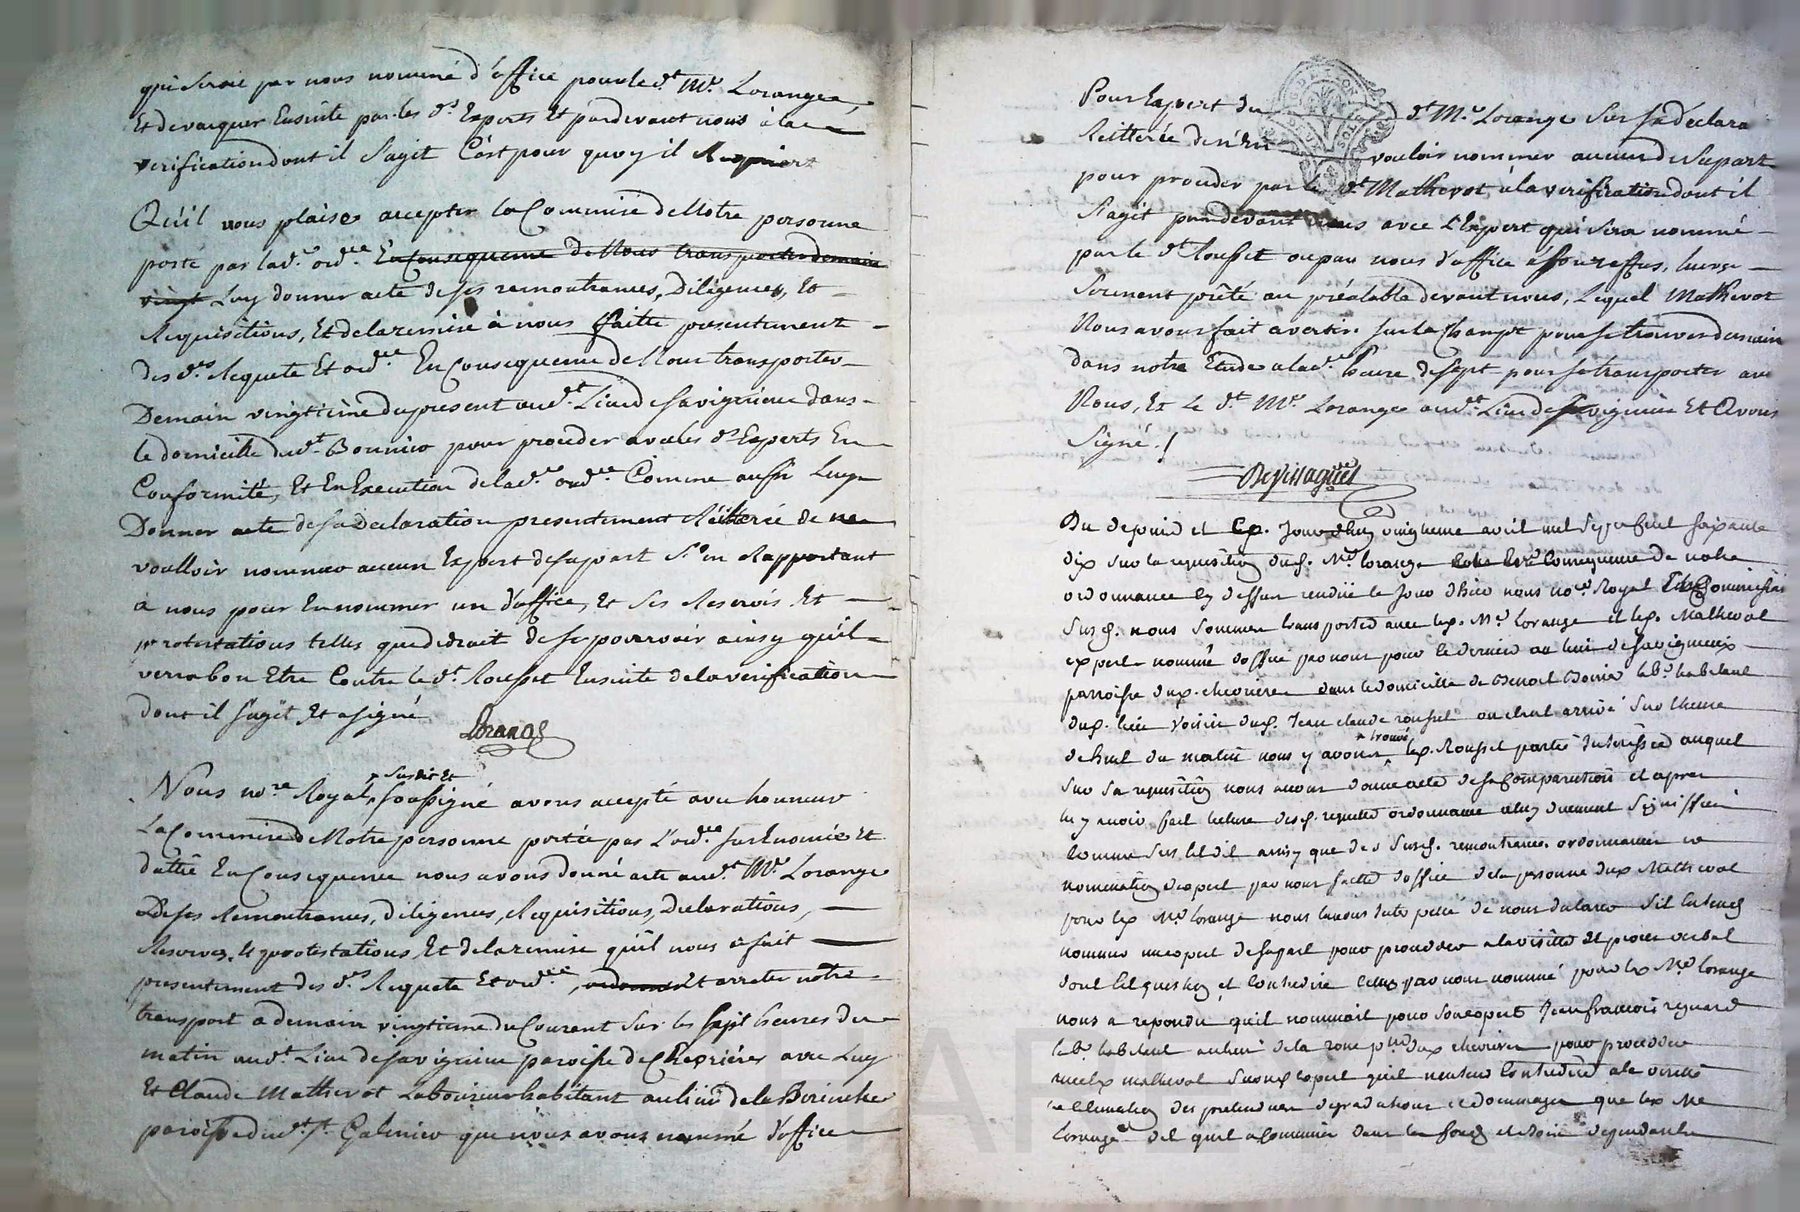 qui serait par nous nommé d'office pour led.t M.e Lorange,
Et de vacquer Ensuite par les d.s Experts Et pardevant nous à la
verification dont il s'agit C'est pour quoy il Requiert
Qu'il vous plaise accepter la Commise de Notre personne
porté par lad.e ord.ce En Consequence de Nous transporter demain
vingt Luy donner acte de ses remontrances, Diligences, Et
Requisitions, Et de la remise à nous faitte presentement
des d.es Requete Et ord.ce En Consequence de Nous transporter
Demain vingtième du present aud.t Lieu de savigneux dans
le domicille dud.t Bonnier pour proceder avec les d.s Experts En
Conformité, Et En Execution de lad.e ord.ce Comme aussi Luy
Donner acte de sa declaration presentement Réitérée de ne
voulloir nommer aucun Expert de sa part s'en Rapportant
a nous pour En nommer un d'office, Et ses Reserves Et
protestations telles que de droit de se pourvoir ainsy qu'il
verra bon Etre Contre led.t Rousset Ensuite de la verification
dont il s'agit Et a signé
Lorange
Nous no.re Royal susdit Et soussigné avons accepté avec honneur
La Commise de Notre personne portée par L'ord.ce sus Enoncée Et
dattée En Consequence nous avons donné acte aud.t M.e Lorange
De ses Remontrances, diligences, Requisitions, Declarations,
Reserves, & protestations, Et de la remise qu'il nous a fait
presentement des d.es Requete Et ord.ce, ordonné Et arreter notre
transport a demain vingtieme du Courant sur les sept heures du
matin aud.t Lieu de savigneux paroisse de Chevrières avec Luy
Et Claude Mathevot Laboureur habitant au lieu de la
paroisse dud.t s.t Galmier que nous avons nommé d'office
Pour Expert du d.t M.e Lorange sur sa déclara
Reitterée de n'En vouloir nommer aucun de sa part
pour proceder par le d.t Mathevot à la verification dont il
s'agit pardevant nous avec L'Expert qui sera nommé
par le d.t Rousset ou par nous d'office à son reffus, leur
serment prêté au préalable devant nous, Lequel Mathevot
Nous avons fait avertir sur le Champ pour se trouver demain
dans notre Etude a lad.e heure de sept pour se transporter avec
Nous, Et le d.t M.e Lorange aud.t Lieu de savigneux Et avons
signé !
Du depuis et Ce. jourdhuy vingtieme avril mil sept cent soixante
dix sur la requisition dud. M.e Lorange Consequence de notre
ordonnance cy dessus rendüe le jour d'hier nous no.re Royal Commissaire
susd. nous sommes transportés avec led. M.e Lorange et led. Mathevot
expert nommé d'office par nous pour le dernier au lieu de savigneux
parroisse dud. chevrieres dans le domicille de Benoit Bonnier lab.r habitant
dud. lieu voisin dud. Jean claude rousset ou etant arrivé sur l'heure
de huit du matin nous y avons trouvé led. Rousset partie interessée auquel
sur sa requisition nous avons donné acte de sa Comparution et apres
luy avoir fait lecture desd. requette ordonnance
ainsy que des susd. remontrances ordonnances et
nomination d'expert par nous faitte d'office de la personne dud Mathevot
pour led M.e Lorange nous l'avons interpellé de nous declarer s'il entend
nommer un expert de sa part pour proceder a la visitte et procès verbal
dont est question et par nous nommé pour led M.e Lorange
nous a repondu qu'il nommait pour son expert Jean francois
lab.r habitant au lieu de la chevrieres pour proceder
avec led mathevot son expert qu'il
estimation des pretendues degradations et dommages que led M.e
Lorange dit qu'il a Commis dans les fonds dependants